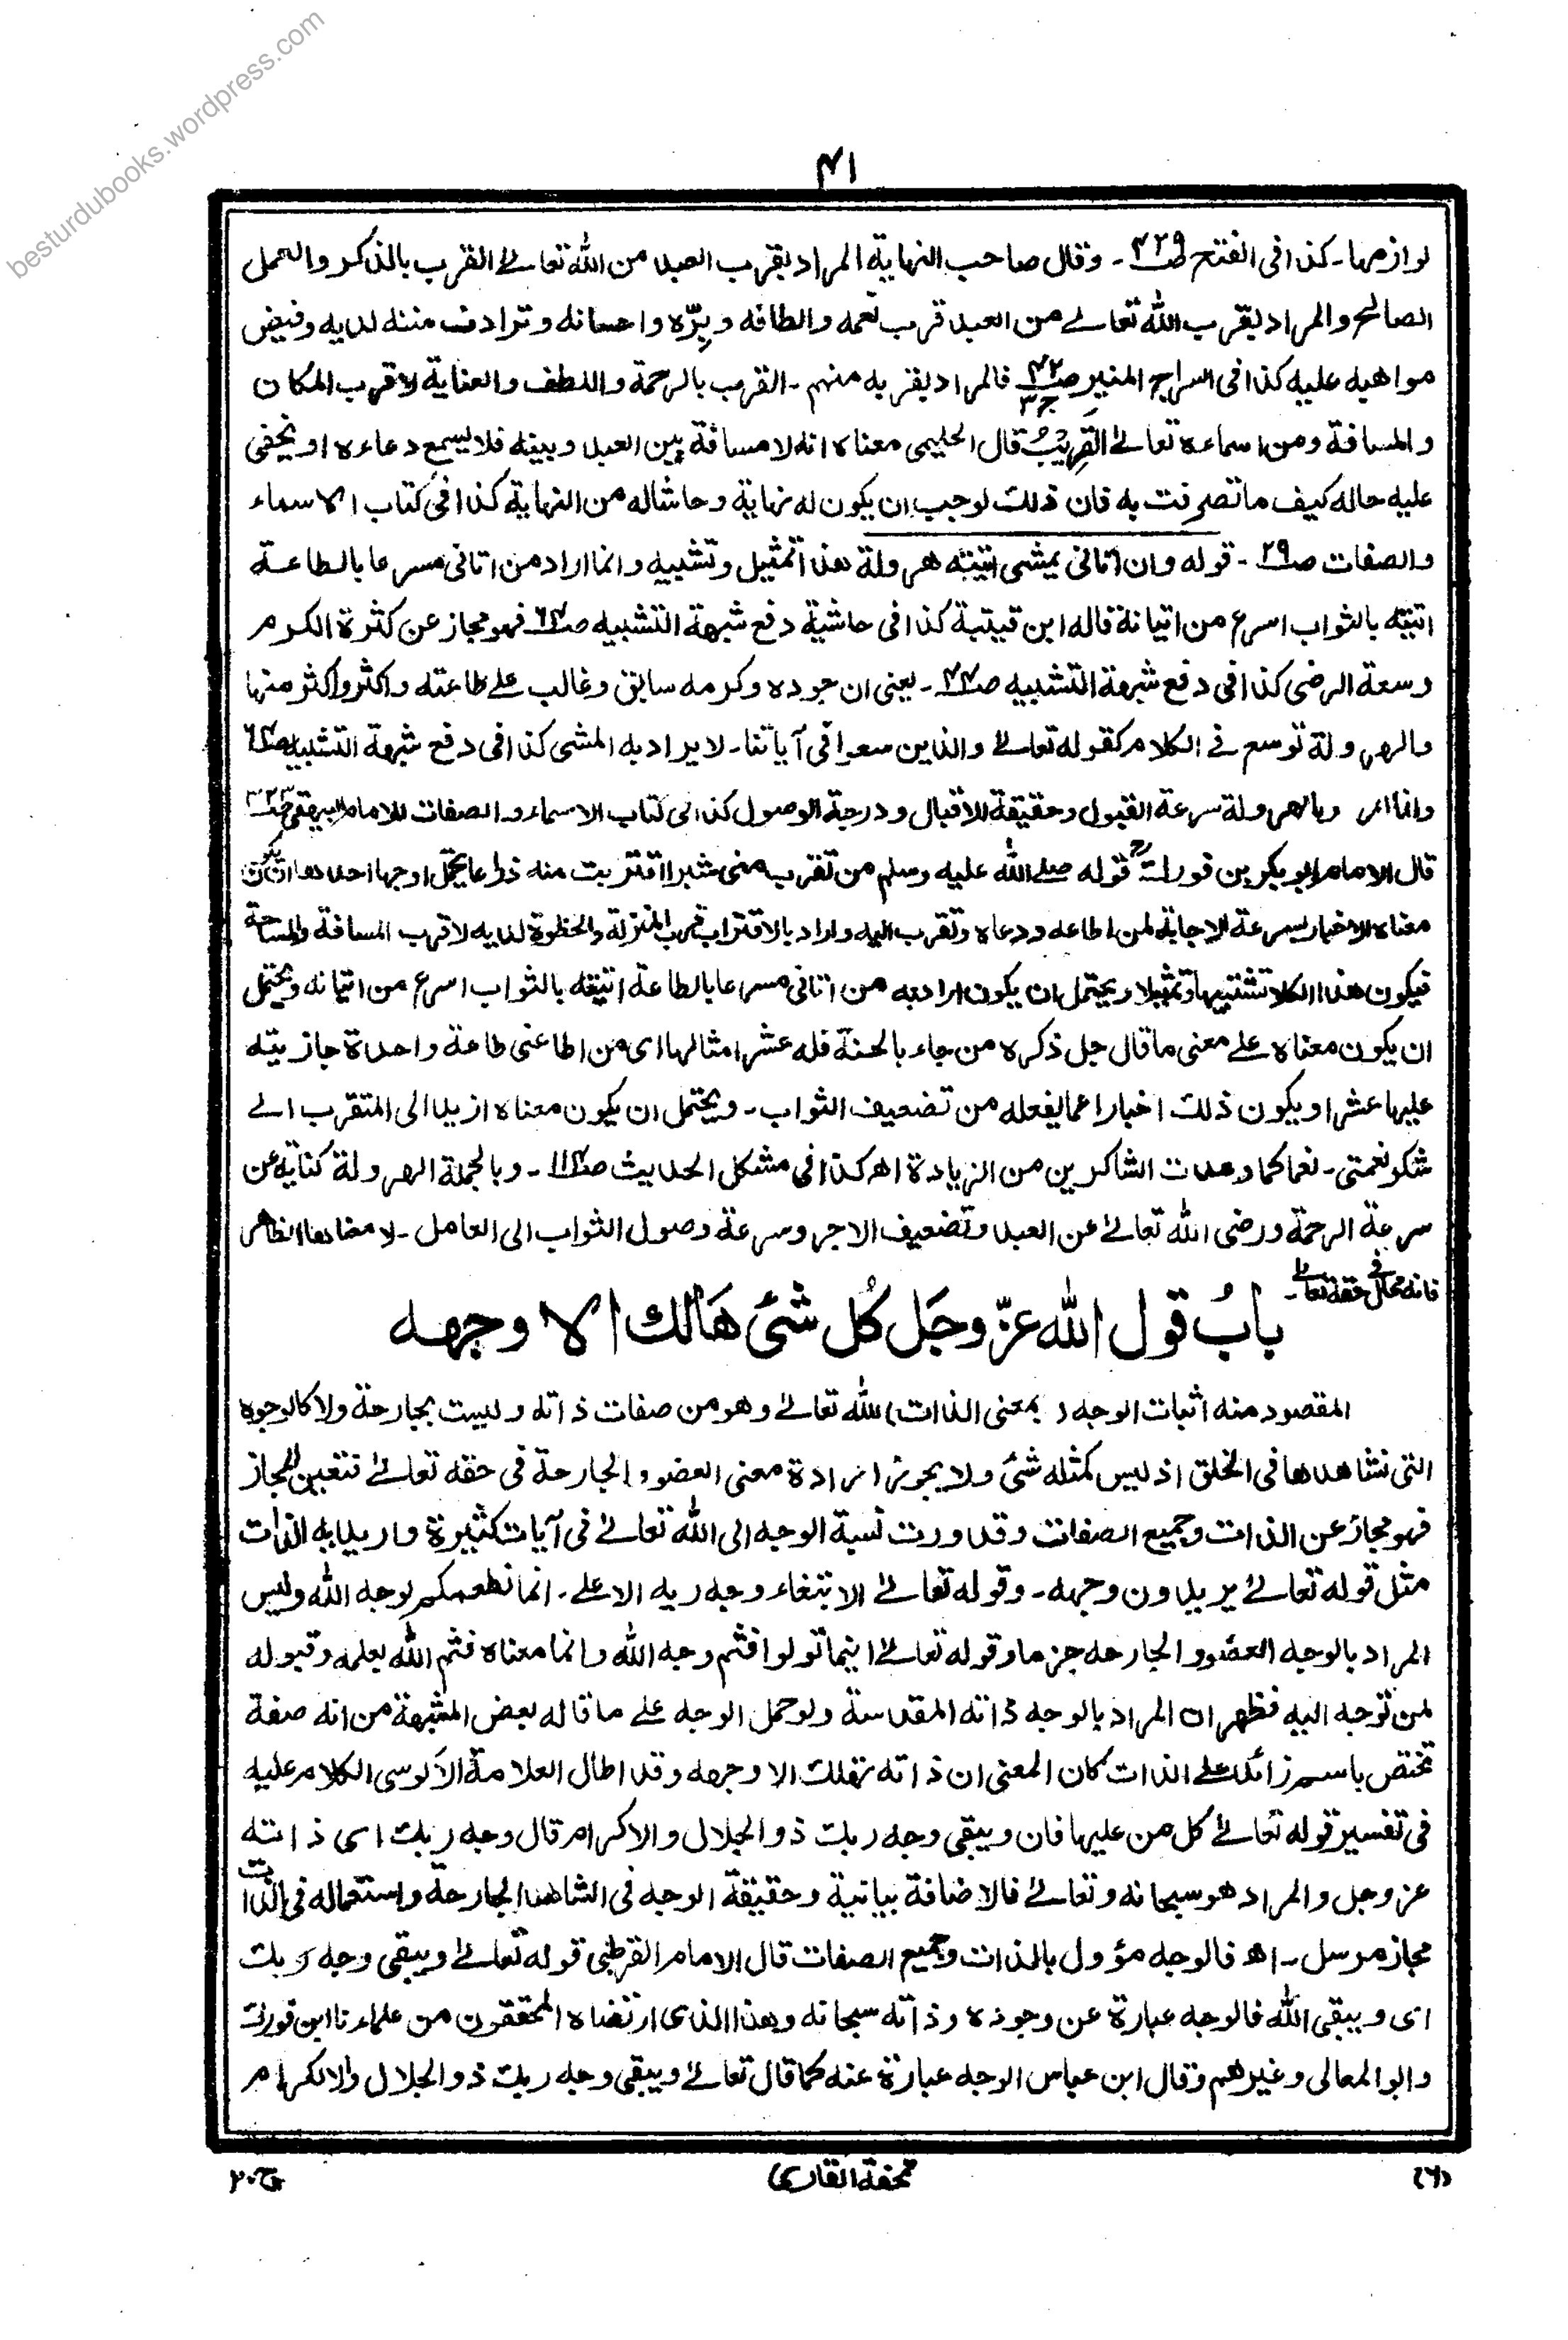 besturdubooks.wordpress.com
۴۱
لوازمها۔ كذا فى الفتح ص۴۲۹ ۔ وقال صاحب النهاية المراد بقرب العبد من الله تعالے القرب بالذكر والعمل
الصالح والمراد بقرب الله تعالے من العبد قرب نعمه والطافه وبِرّه واحسانه وترادف مننه لديه وفيض
مواهبه عليه كذا فى السراج المنير ص۴۲ ج۳ فالمراد بقربه منهم۔ القرب بالرحمة واللطف والعناية لا قرب المكان
والمسافة ومن اسماءه تعالےٰ القَرِيْبُ قال الحليمى معناه انه لا مسافة بين العبد وبينه فلا يسمع دعاءه او يخفى
عليه حاله كيف ما تصرفت به فان ذلك لوجب ان يكون له نهاية وحاشاله من النهاية كذا فى كتاب الاسماء
والصفات ص۲۹ ۔ قوله وان اتانى يمشى اتيته هرولة هذا تمثيل وتشبيه وانما اراد من اتانى مسرعا بالطاعة
اتيته بالثواب اسرع من اتيانه قاله ابن قتيبة كذا فى حاشية دفع شبهة التشبيه فهو مجاز عن كثرة الكرم
وسعة الرضى كذا فى دفع شبهة التشبيه ۔ يعنى ان جوده وكرمه سابق وغالب على طاعته واكثر واكثر منها
والهرولة توسع فے الكلام كقوله تعالےٰ والذين سعوا فى آياتنا۔ لا يراد به المشى كذا فى دفع شبهة التشبيه
وانما ار وبالهرولة سرعة القبول وحقيقة الاقبال ودرجة الوصول كذا فى كتاب الاسماء والصفات للامام البيهقى
قال الامام ابو بكر بن فورك رح قوله صلے الله عليه وسلم من تقرب منى شبرا اقتربت منه ذراعا يحتمل اوجها احدها ان يكون
معناه الاخبار بسرعة الاجابة لمن اطاعه ودعاه وتقرب اليه واراد بالاقتراب قرب المنزلة والحظوة لديه لا قرب المسافة والمساحة
فيكون هذا الكلا تشبيها وتمثيلا ويحتمل ان يكون اراد به من اتانى مسرعا بالطاعة اتيته بالثواب اسرع من اتيانه ويحتمل
ان يكون معناه علے معنى ما قال جل ذكره من جاء بالحسنة فله عشر امثالها اى من اطاعنى طاعة واحدة جازيته
عليها عشرا ويكون ذلك اخبارا عما يفعله من تضعيف الثواب۔ ويحتمل ان يكون معناه ازيد الى المتقرب الے
شكر نعمتى۔ نعما كما وعدت الشاكرين من الزيادة اھ كذا فى مشكل الحديث ۔ وبالجملة الهرولة كناية عن
سرعة الرحمة ورضى الله تعالےٰ عن العبد وتضعيف الاجر وسرعة وصول الثواب الى العامل۔ لا معناها الظاهر
فانه محال فى حقه تعالےٰ۔
بابُ قول الله عزّ وجَل كُل شئ هَالك الا وجهه
المقصود منه اثبات الوجه (بمعنى الذات) لله تعالےٰ وهو من صفات ذاته وليست بجارحة ولا كالوجوه
التى نشاهدها فى الخلق اذ ليس كمثله شئ ولا يجوز ارادة معنى العضو والجارحة فى حقه تعالےٰ فتعين المجاز
فهو مجاز عن الذات وجميع الصفات وقد ورت نسبة الوجه الى الله تعالےٰ فى آيات كثيرة واريد به الذات
مثل قوله تعالےٰ يريدون وجهه۔ وقوله تعالےٰ الا ابتغاء وجه ربه الاعلے۔ انما نطعمكم لوجه الله وليس
المراد بالوجه العضو والجارحه جزما وقوله تعالےٰ اينما تولوا فثم وجه الله وانما معناه فثم الله بعلمه وقبوله
لمن توجه اليه فظهر ان المراد بالوجه ذاته المقدسة ولو حمل الوجه علے ما قاله بعض المشبهة من انه صفة
تختص باسم زائد على الذات كان المعنى ان ذاته تهلك الا وجهه وقد اطال العلامة الآلوسى الكلام عليه
فى تفسير قوله تعالےٰ كل من عليها فان ويبقى وجه ربك ذو الجلال والاكرام قال وجه ربك اى ذاته
عز وجل والمراد هو سبحانه وتعالےٰ فالاضافة بيانية وحقيقة الوجه فى الشاهد الجارحة واستعماله فى الذات
مجاز مرسل۔ اھ فالوجه مؤول بالذات وجميع الصفات قال الامام القرطبى قوله تعالےٰ ويبقى وجه ربك
اى ويبقى الله فالوجه عبارة عن وجوده وذاته سبحانه وهذا الذى ارتضاه المحققون من علماءنا ابن فورك
وابو المعالى وغيرهم وقال ابن عباس الوجه عبارة عنه كما قال تعالےٰ ويبقى وجه ربك ذو الجلال والاكرام
(۶)
تحفة القارى
ج۲۰